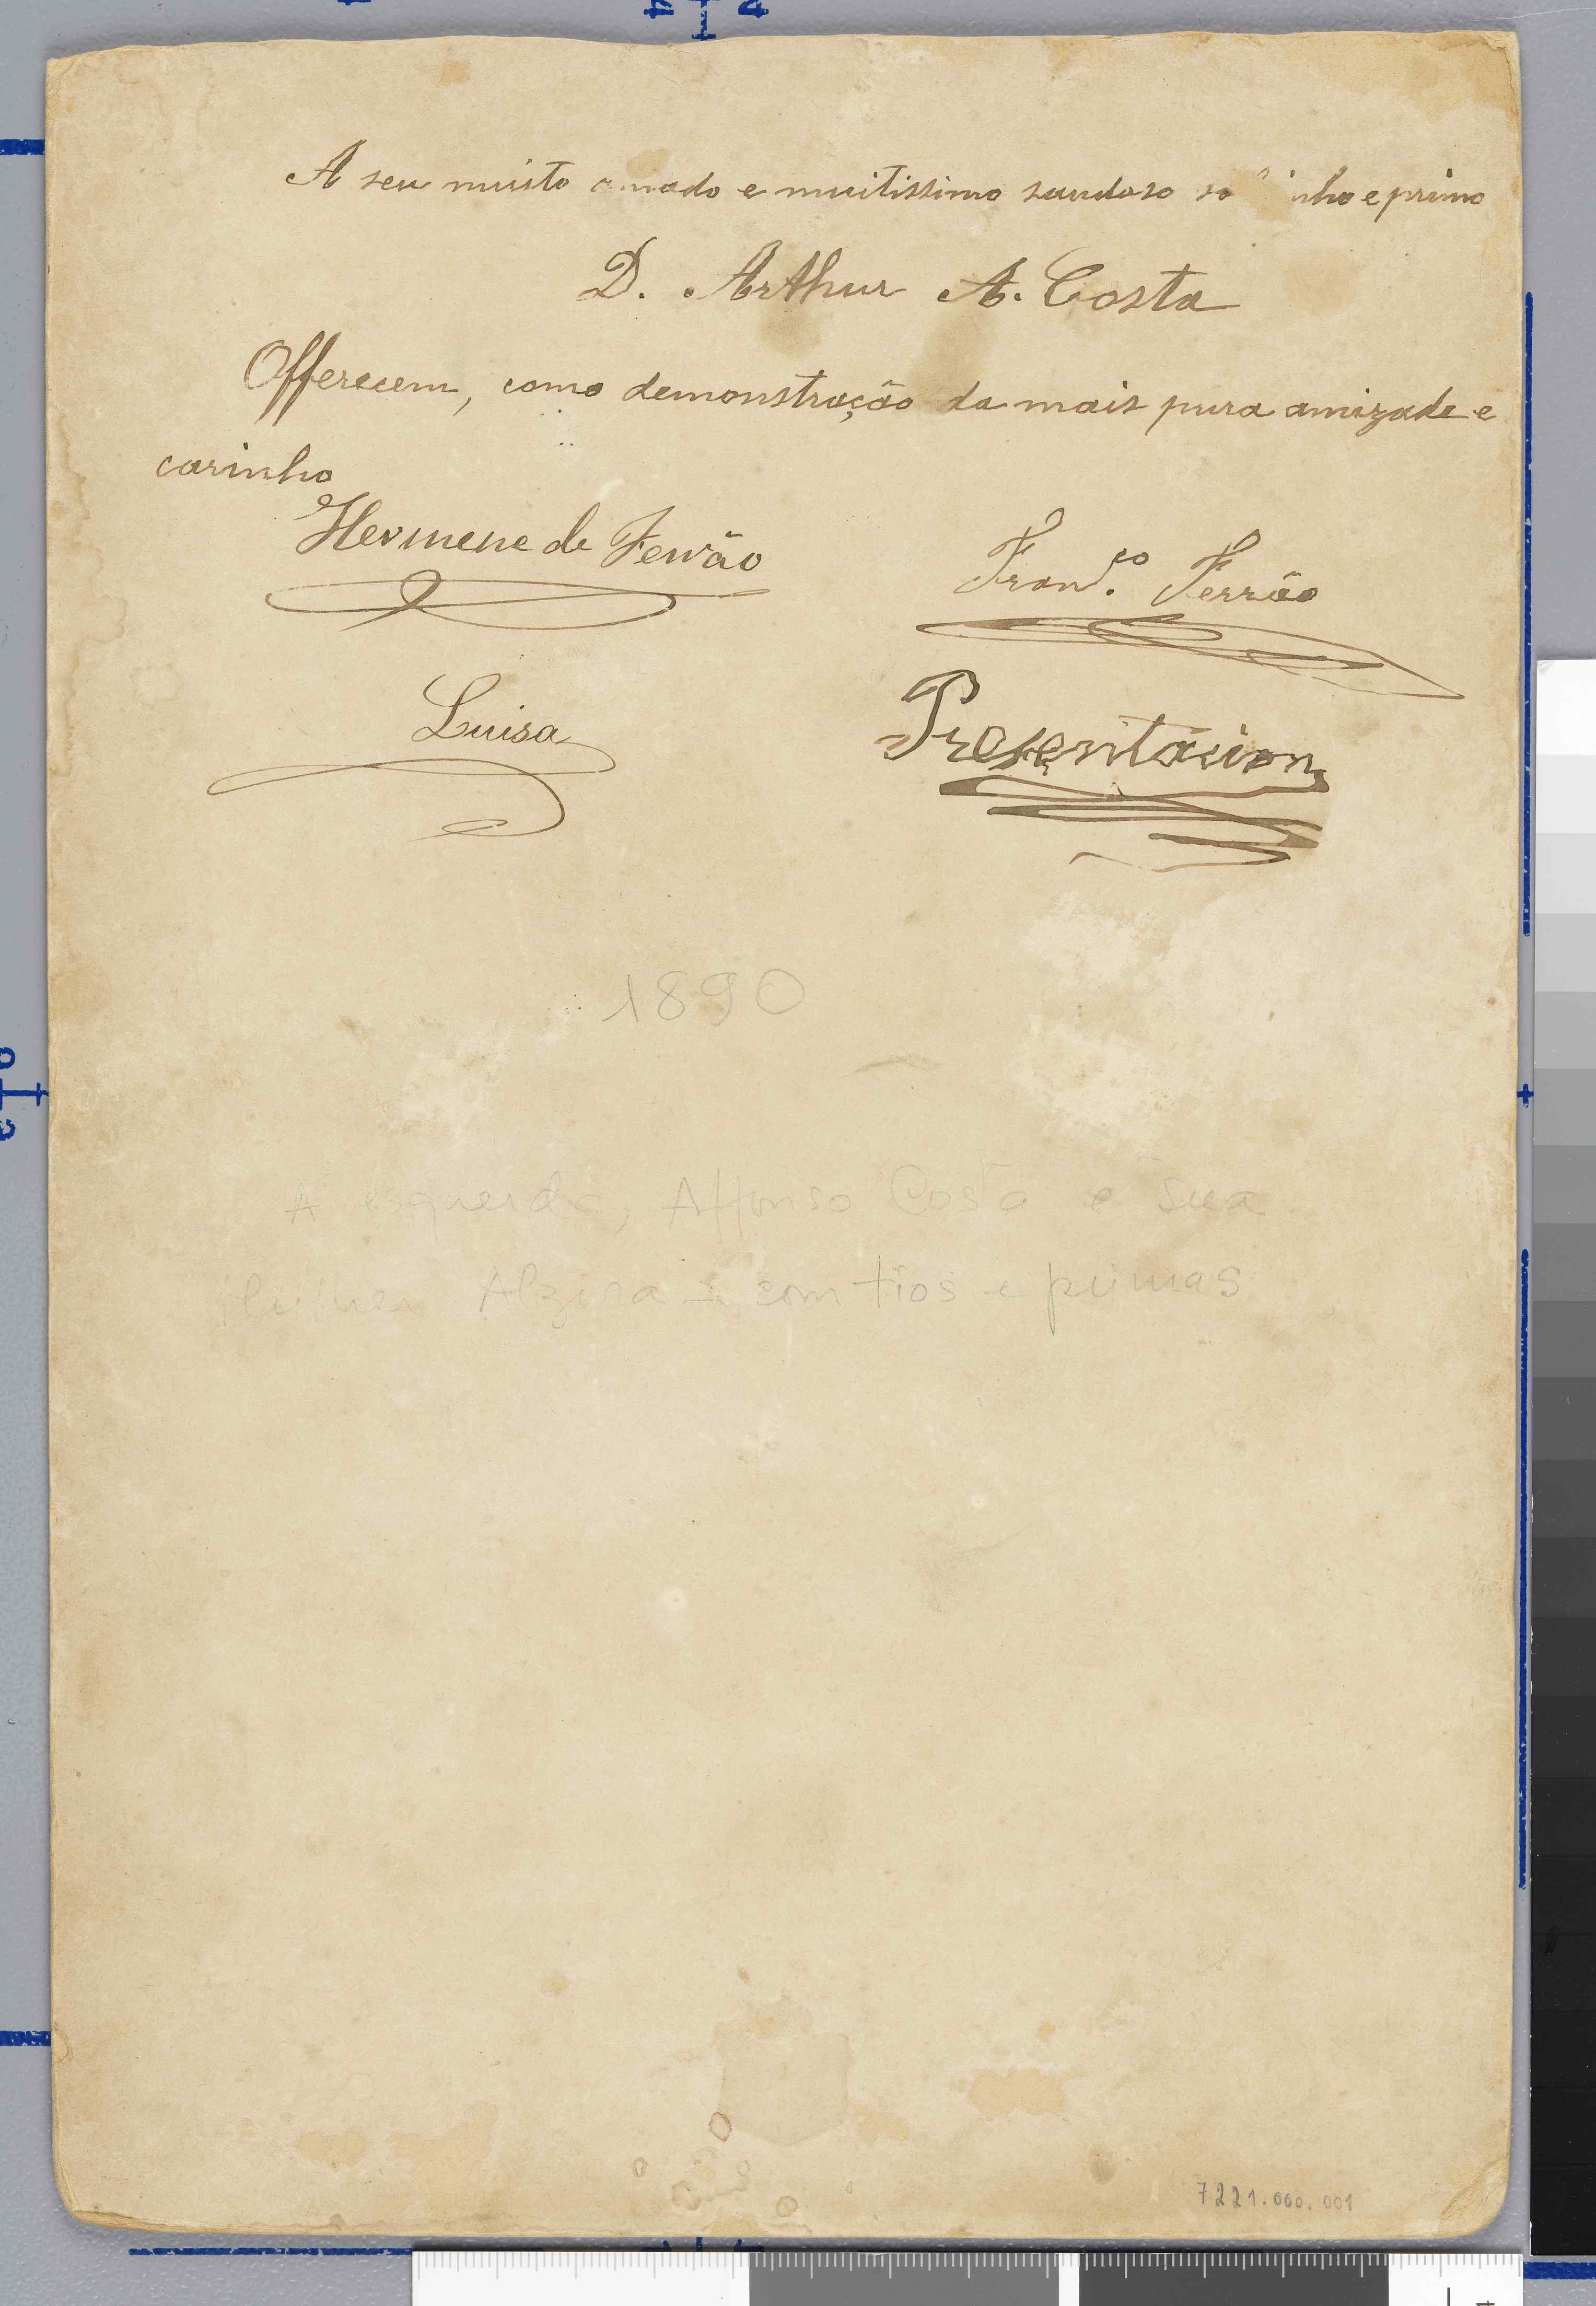 A seu muito amado e muitissimo saudoso so inho e primo
D. Arthur A. Costa
Offerecem, como demonstração da mais pura amizade e
carinho
Hermene de Ferrão
Fran.co Ferrão
Luisa
Presentacion
1890
A esquerda, Affonso Costa e sua
mulher Alzira - com tios e primas
7221.000.001